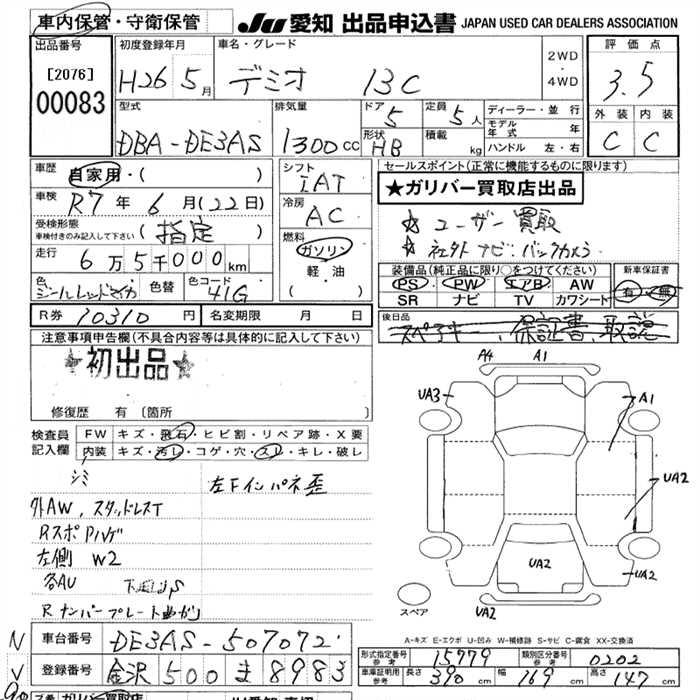 車内保管・守衛保管 JU 愛知 出品申込書 JAPAN USED CAR DEALERS ASSOCIATION
出品番号 [2076] 00083
初度登録年月 H26 5月
車名・グレード デミオ 13C
2WD・4WD
評価点 3.5
外装 C 内装 C
型式 DBA-DE3AS
排気量 1300cc
ドア 5 形状 HB
定員 5人 積載 kg
ディーラー・並行
モデル年式 年
ハンドル 左・右
車歴 自家用・( )
車検 R7年6月(22日)
受検形態 車検付きのみ記入して下さい (指定)
走行 6万5千000km
色 ジールレッドマイカ 色替 色コード 41G
シフト IAT
冷房 AC
燃料 ガソリン 軽油 ( )
セールスポイント(正常に機能するものに限ります)
★ガリバー買取店出品
☆ ユーザー買取
☆ 社外ナビ.バックカメラ
装備品(純正品に限り○をつけてください)
PS PW エアB AW
SR ナビ TV カワシート
新車保証書 有・無
R券 10310円 名変期限 月 日
後日品 スペアキー 保証書 取説
注意事項申告欄(不具合内容等は具体的に記入して下さい)
★初出品★
修復歴 有 [箇所 ]
検査員記入欄
FW キズ・飛石・ヒビ割・リペア跡・X要
内装 キズ・汚レ・コゲ・穴・スレ・キレ・破レ
シミ 左Fインパネ歪
外AW、スタッドレスT
Rスポハゲ
左側 W2
各AU 下廻りS
Rナンバープレート曲がり
A4 A1
UA3 A1
UA2
UA2
UA2
UA2
スペア
A-キズ E-エクボ U-凹み W-補修跡 S-サビ C-腐食 XX-交換済
車台番号 DE3AS-507072
登録番号 金沢 500 ま 8983
型式指定番号 参考 15779 類別区分番号 参考 0202
車庫証明用 参考 長さ 390cm 幅 169cm 高さ 147cm
ガリバー買取店 JU愛知